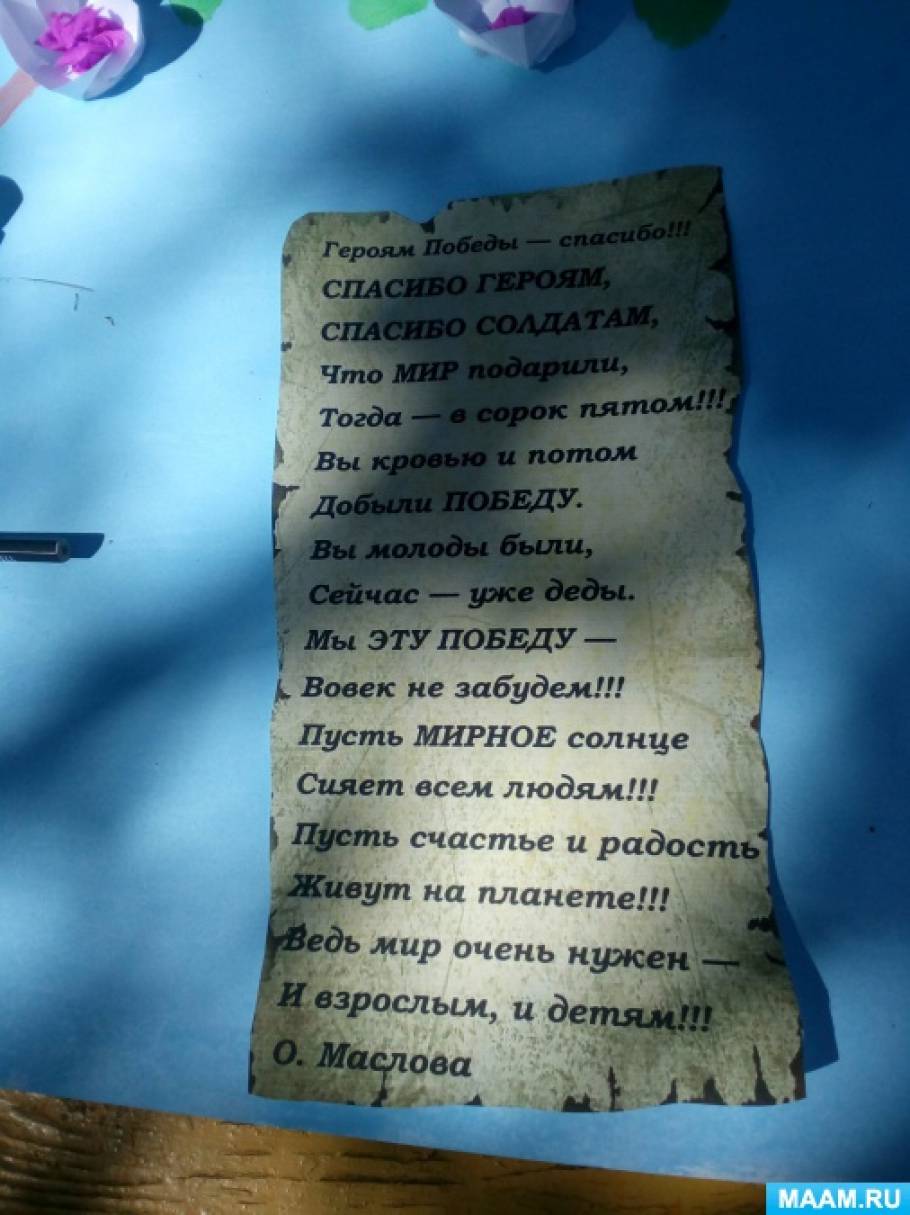 Героям Победы — спасибо!!!
СПАСИБО ГЕРОЯМ,
СПАСИБО СОЛДАТАМ,
Что МИР подарили,
Тогда — в сорок пятом!!!
Вы кровью и потом
Добыли ПОБЕДУ.
Вы молоды были,
Сейчас — уже деды.
Мы ЭТУ ПОБЕДУ —
Вовек не забудем!!!
Пусть МИРНОЕ солнце
Сияет всем людям!!!
Пусть счастье и радость
Живут на планете!!!
Ведь мир очень нужен —
И взрослым, и детям!!!
О. Маслова
MAAM.RU